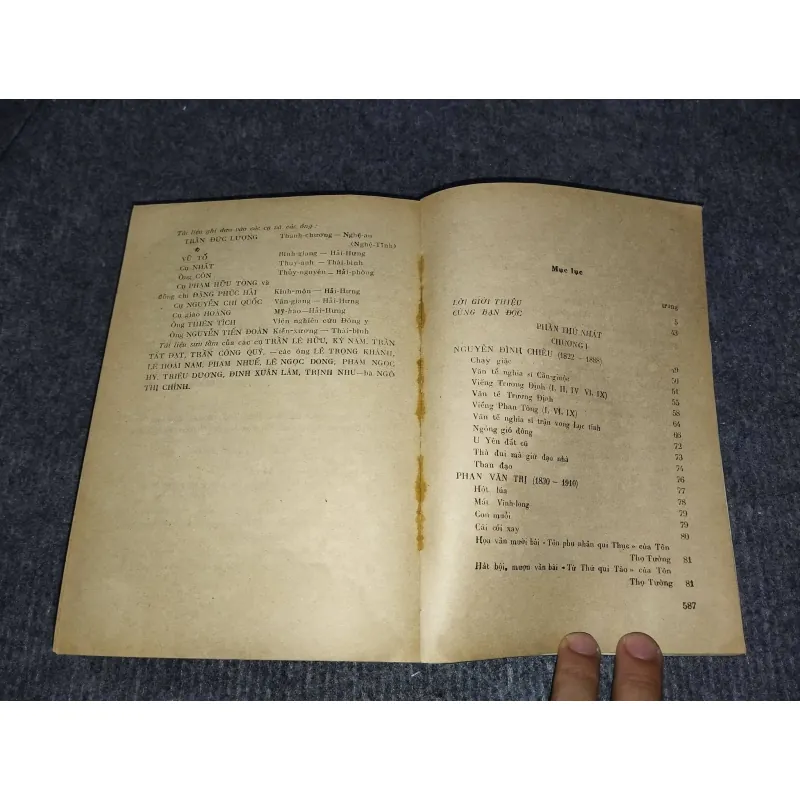 Tài liệu ghi theo vận các cụ và các ông:
TRẦN ĐỨC LƯƠNG Thanh-chương — Nghệ-an
(Nghệ-Tĩnh)
VŨ TỐ Bình-giang — Hải-Hưng
Cụ NHẤT Thụy-anh — Thái-bình
Ông CÔN Thủy-nguyên — Hải-phòng
Cụ PHẠM HỮU TÒNG và
đồng chí ĐẶNG PHÚC HẢI Kinh-môn — Hải-Hưng
Cụ NGUYỄN CHÍ QUỐC Văn-giang — Hải-Hưng
Cụ giáo HOÀNG Mỹ-hào — Hải-Hưng
Ông THIÊN TÍCH Viện nghiên cứu Đông y
Ông NGUYỄN TIẾN ĐOÀN Kiến-xương — Thái-bình
Tài liệu sưu tầm của các cụ TRẦN LÊ HỮU, KỲ NAM, TRẦN
TẤT ĐẠT, TRẦN CÔNG QUÝ, — các ông LÊ TRỌNG KHÁNH,
LÊ HOÀI NAM, PHẠM NHUẾ, LÊ NGỌC DONG, PHẠM NGỌC
HY, TRIỀU DƯƠNG, ĐINH XUÂN LÂM, TRỊNH NHU — bà NGÔ
THỊ CHÍNH.
Mục lục
trang
LỜI GIỚI THIỆU 5
CÙNG BẠN ĐỌC 43
PHẦN THỨ NHẤT
CHƯƠNG I
NGUYỄN ĐÌNH CHIỂU (1822 - 1888)
Chạy giặc 49
Văn tế nghĩa sĩ Cần-giuộc 50
Viếng Trương Định (I, II, IV, VI, IX) 54
Văn tế Trương Định 55
Viếng Phan Tòng (I, VI, IX) 58
Văn tế nghĩa sĩ trận vong Lục tỉnh 64
Ngóng gió đông 66
U Yên đất cũ 72
Thà đui mà giữ đạo nhà 73
Than đạo 74
PHAN VĂN TRỊ (1830 - 1910) 76
Hột lúa 77
Mất Vĩnh-long 78
Con muỗi 79
Cái cối xay 79
Họa vần mười bài «Tôn phu nhân qui Thục» của Tôn 80
Thọ Tường 81
Hát bội, mượn vần bài «Từ Thứ qui Tào» của Tôn
Thọ Tường 81
587